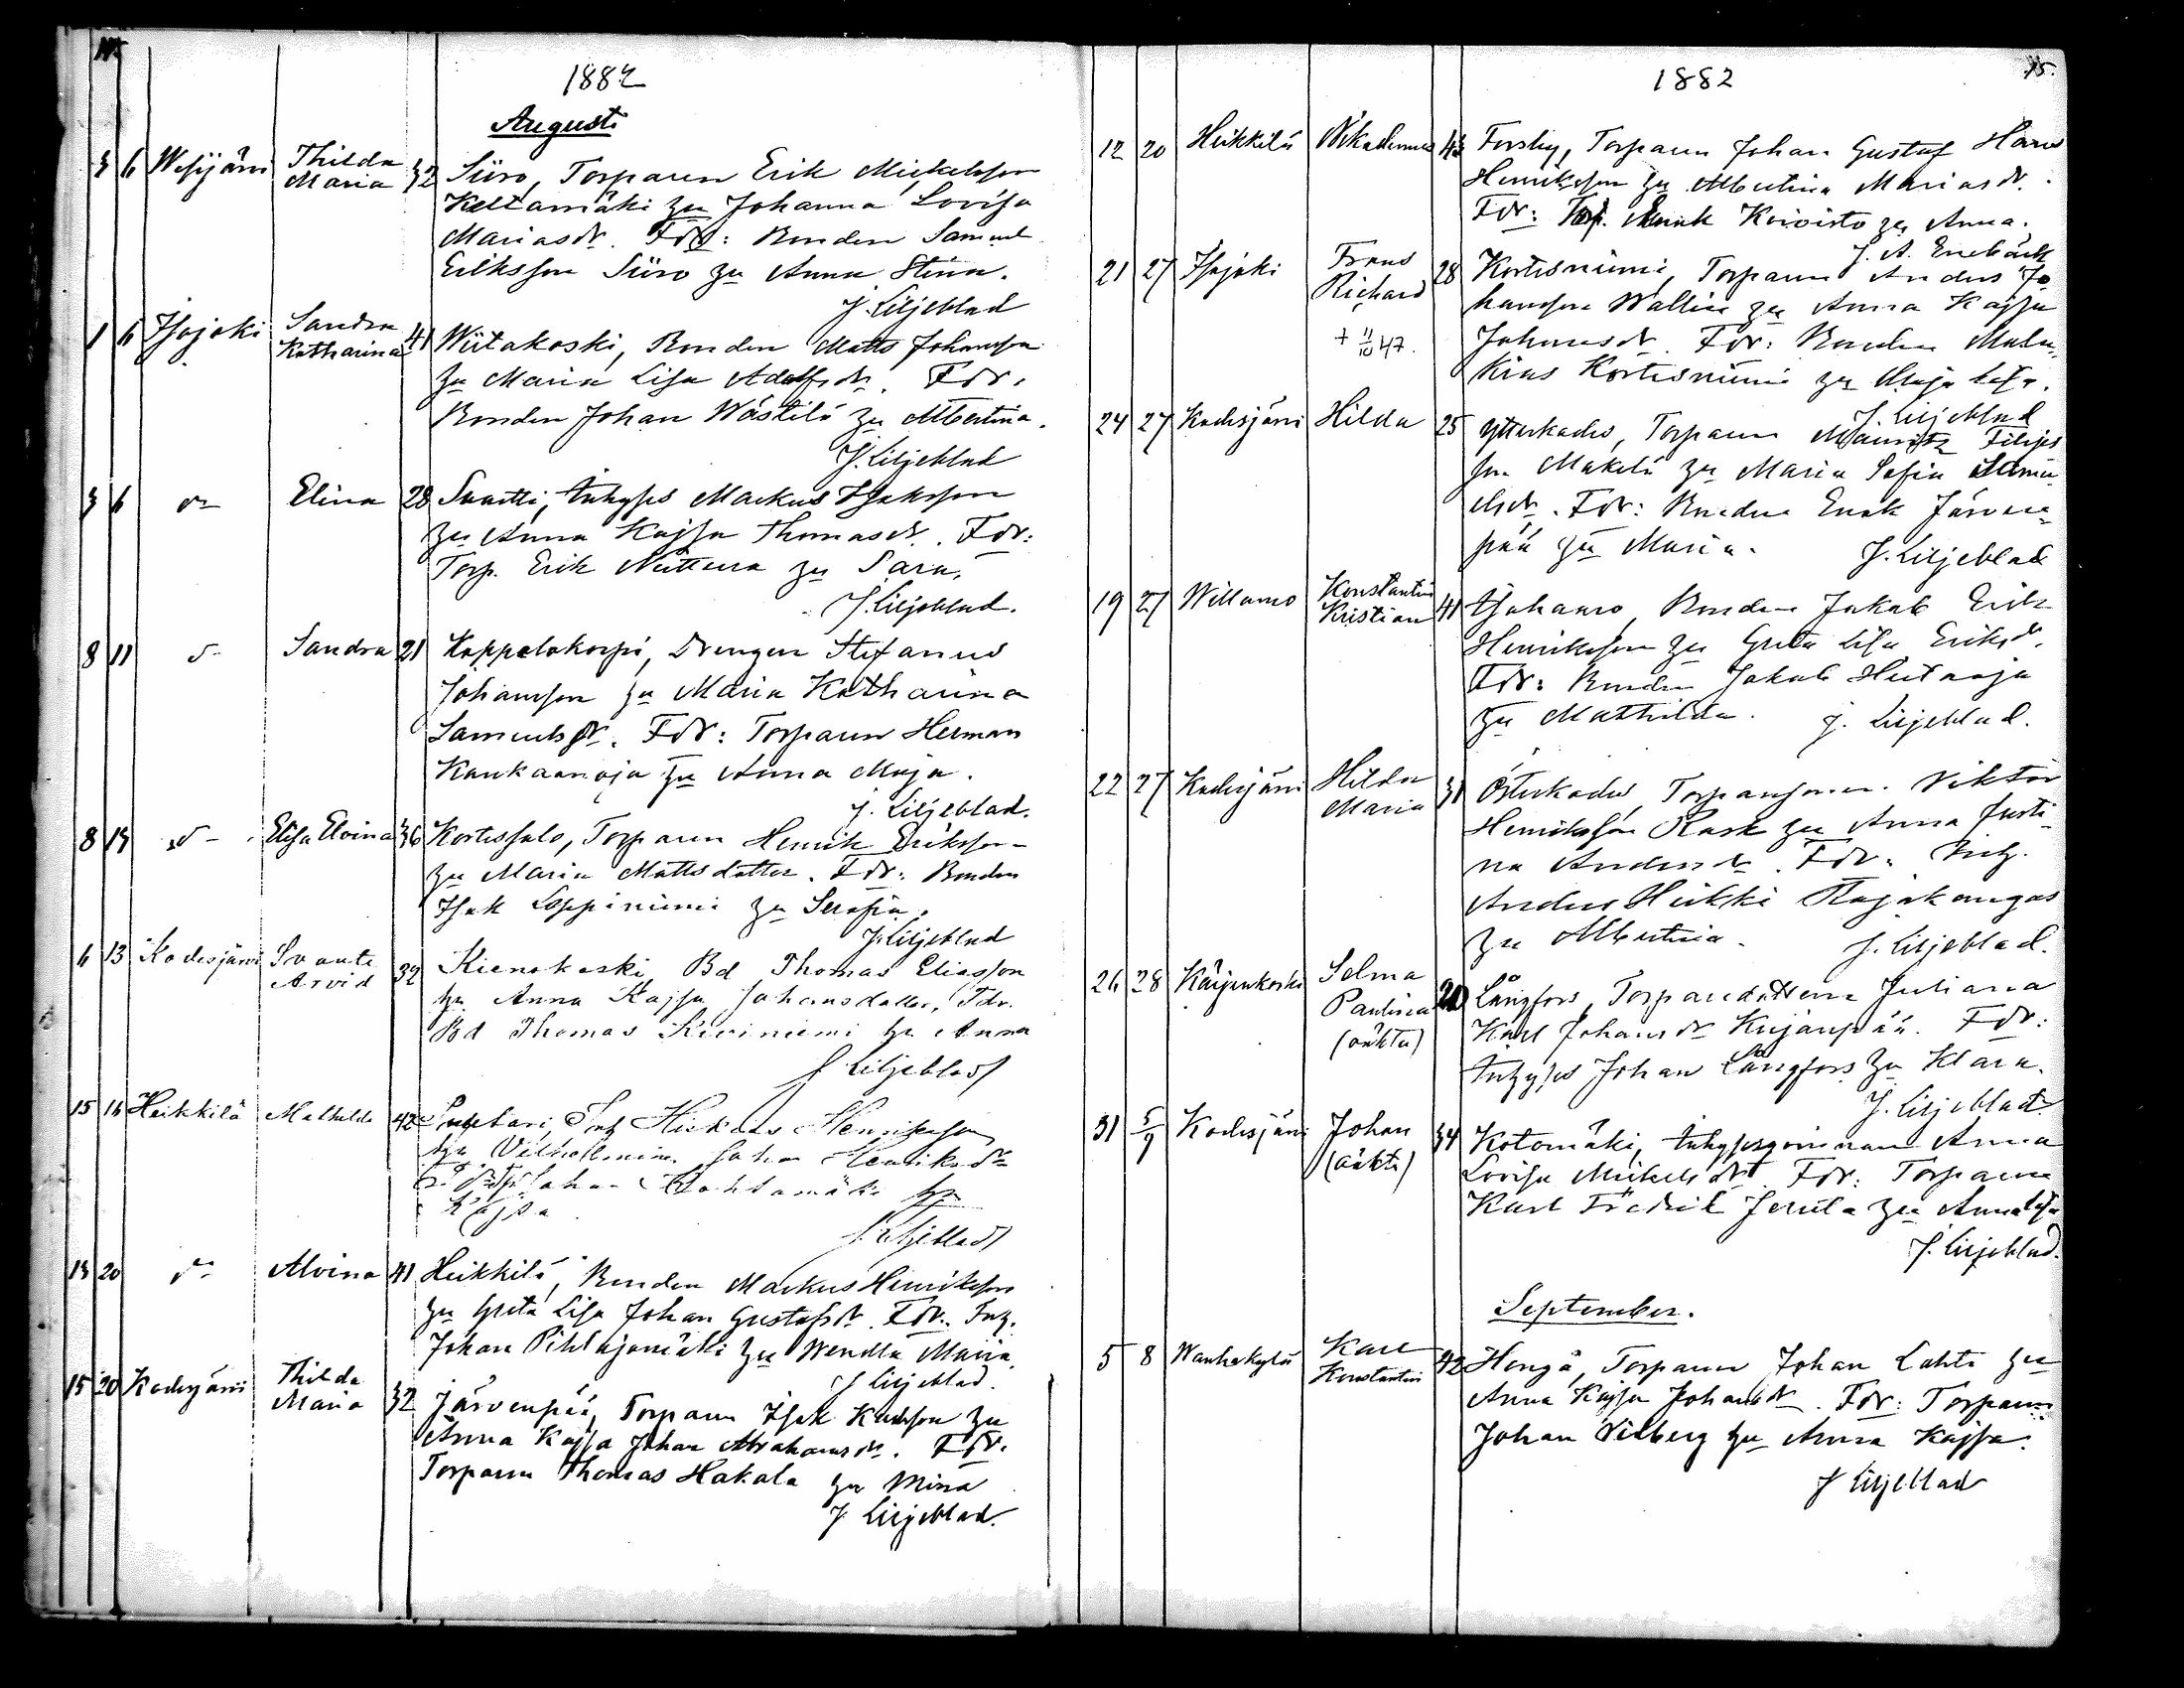 1882
Augusti
3 6 Wesijärvi Thilda Maria 32 Siiro, Torparen Erik Mickelsson
Keltamäki hu Johanna Lovisa
Mariasdr. Fdr: Bonden Samuel
Eriksson Siiro hu Anna Stina.
J. Liljeblad
1 6 Isojoki Sandra Katharina 41 Wiitakoski, Bonden Matts Johansson
hu Maria Lisa Adolfsdr. Fdr.
Bonden Johan Wästilä hu Albertina.
J. Liljeblad
3 6 do Elina 28 inhyses Markus Isaksson
hu Anna Kajsa Thomasdr. Fdr:
Torp. Erik hu Sara.
J. Liljeblad.
8 11 do Sandra 21 Koppelokorpi, Drengen Stefanus
Johansson hu Maria Katharina
Samuelsdr. Fdr: Torparen Herman
Kankaanoja hu Anna Maja.
J. Liljeblad.
8 do Elisa Elvina 36 Kortessalo, Torparen Henrik Eriksson
hu Maria Mattsdotter. Fdr: Bonden
Isak Leppiniemi hu Serafia.
J. Liljeblad
6 13 Kodesjärvi Svante Arvid 32 Kienokoski Bd Thomas Eliasson
hu Anna Kajsa Johansdotter, Fdr.
Bd Thomas Kiviniemi hu Anna
J Liljeblad
15 16 Heikkilä Mathilda 42
hu Vilhelmina Johan Henriksdr
Kajsa
J. Liljeblad
13 20 do Alvina 41 Heikkilä, Bonden Markus Henriksson
hu Greta Lisa Johan Gustafsdr. Fdr. Inh.
Johan Pihlajamäki hu Wendla Maria.
J Liljeblad.
15 20 Kodesjärvi Thilda Maria 32 Järvenpää, Torparen Isak
hu
Anna Kajsa Johan Abrahamsdr. Fdr.
Torparen Thomas Hakala hu Mina
J Liljeblad.
1882
15.
12 20 Heikkilä Nikodemus 43 Forsby, Torparen Johan Gustaf Hans
Henriksson hu Albertina Mariasdr.
Fdr: Torp. Koivisto hu Anna.
J. A. Enebäck
21 27 Isojoki Frans Richard 28 Kortesniemi, Torparen Anders Jo-
hansson Wallin hu Anna Kajsa
+ 11/10 47. Johansdr. Fdr: Bonden Mala-
kias Kortesniemi hu Maja Lisa.
J. Liljeblad
24 27 Kodesjärvi Hilda 25 Ytterkodes, Torparen Mauritz Filips-
son Mäkelä hu Maria Sofia Samu-
elsdr. Fdr: Bonden Enok Järven-
pää hu Maria.
J. Liljeblad
19 27 Willamo Konstantin Kristian 41 Bonden Jakob Erik
Henriksson hu Greta Lisa Eriksdr.
Fdr: Bonden Jakob Hietaoja
hu Mathilda.
J. Liljeblad.
22 27 Kodesjärvi Hilda Maria 31 Österkodes, Torparsonen Viktor
Henriksson Rask hu Anna Justi-
na Andersdr. Fdr: Inh.
Anders Heikki Rajakangas
hu Albertina.
J. Liljeblad.
26 28 Kärjenkoski Selma Paulina (oäkta) Långfors, Torparedottern Juliana
Karl Johansdr Kujanpää. Fdr:
inhyses Johan Långfors hu Klara.
J. Liljeblad
31 5/9 Kodesjärvi Johan (oäkta) 34 Kotomäki, inhysesqvinnan Anna
Lovisa Mickelsdr. Fdr: Torparen
Karl Fredrik Jerula hu Anna Lisa
J. Liljeblad.
September.
5 8 Wanhakylä Karl Konstantin 42 Hongå, Torparen Johan Lahti hu
Anna Kajsa Johansdr. Fdr: Torparen
Johan Viberg hu Anna Kajsa.
J Liljeblad